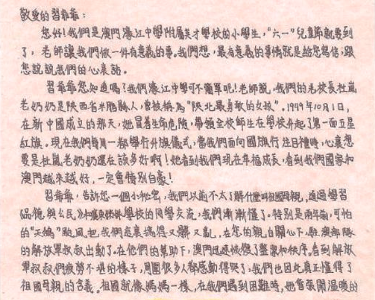 敬爱的习爷爷：
您好！我们是澳门濠江中學附屬英才學校的小學生，"六一"兒童節就要到
了，老師讓我們做一件有意義的事。我們想，最有意義的事情就是給您寫信，跟
您說說我們的心裏話。
習爺爺您知道嗎？我們濠江中學可不簡單呢！老師說，我們的老校長杜嵐
老奶奶是陝西省米脂縣人，曾被稱為"陝北最勇敢的女孩"。1949年10月1日，
在新中國成立的那天，她冒着生命危險，帶領全校師生在學校升起了第一面五星
紅旗。現在我們每月一都學行升旗儀式，當我們面向國旗行注目禮時，心裏想
要是杜嵐老奶奶還在該多好啊！她看到我們現在幸福成長，看到我們國家和
澳門越來越好，一定會特別自豪！
習爺爺，告訴您一個小秘密，我們以前不太了解什麼叫祖國母親，通過學習
《品德與公民》和 學校的同學交流，我們漸漸懂了。特別是前年，可怕
的"天鴿"颱風把我們的家搞得又髒又亂，在您的親自關心下，駐澳部隊
的解放軍叔叔出動了。在他們的幫助下，澳門迅速恢復了整潔和秩序。看到解放
軍叔叔們疲勞不堪的樣子，周圍很多人都感動得哭了，我們也因此真正懂得了
祖國母親的含義。祖國就像媽媽一樣，在我們遇到困難時，她會張開溫暖的